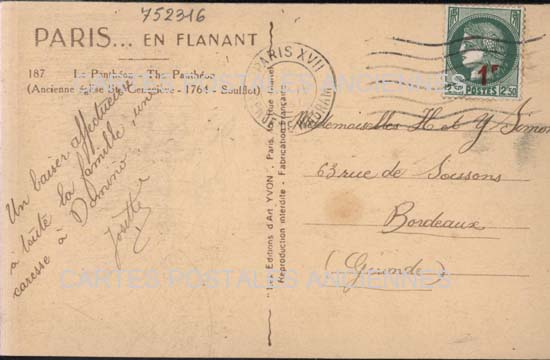 752316
PARIS... EN FLANANT
187 Le Panthéon - The Panthéon
(Ancienne église Ste Geneviève - 1764 - Soufflot)
Un baiser affectueux
a toute la famille, une
caresse à Domino.
Josette
"Les Editions d'Art YVON", Paris,
Reproduction interdite - Fabrication Française
PARIS XVII
POSTES 2,50
1F
Mademoiselles H et Y Simon
63 rue de Soissons
Bordeaux
(Gironde)
CARTES POSTALES ANCIENNES
CARTES POSTALES ANCIENNES